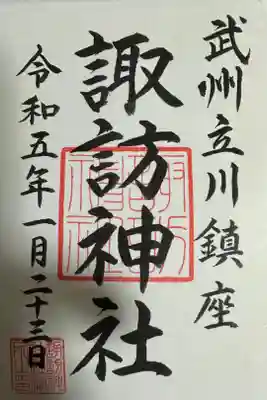 武州立川鎮座
諏訪神社
令和五年一月二十三日